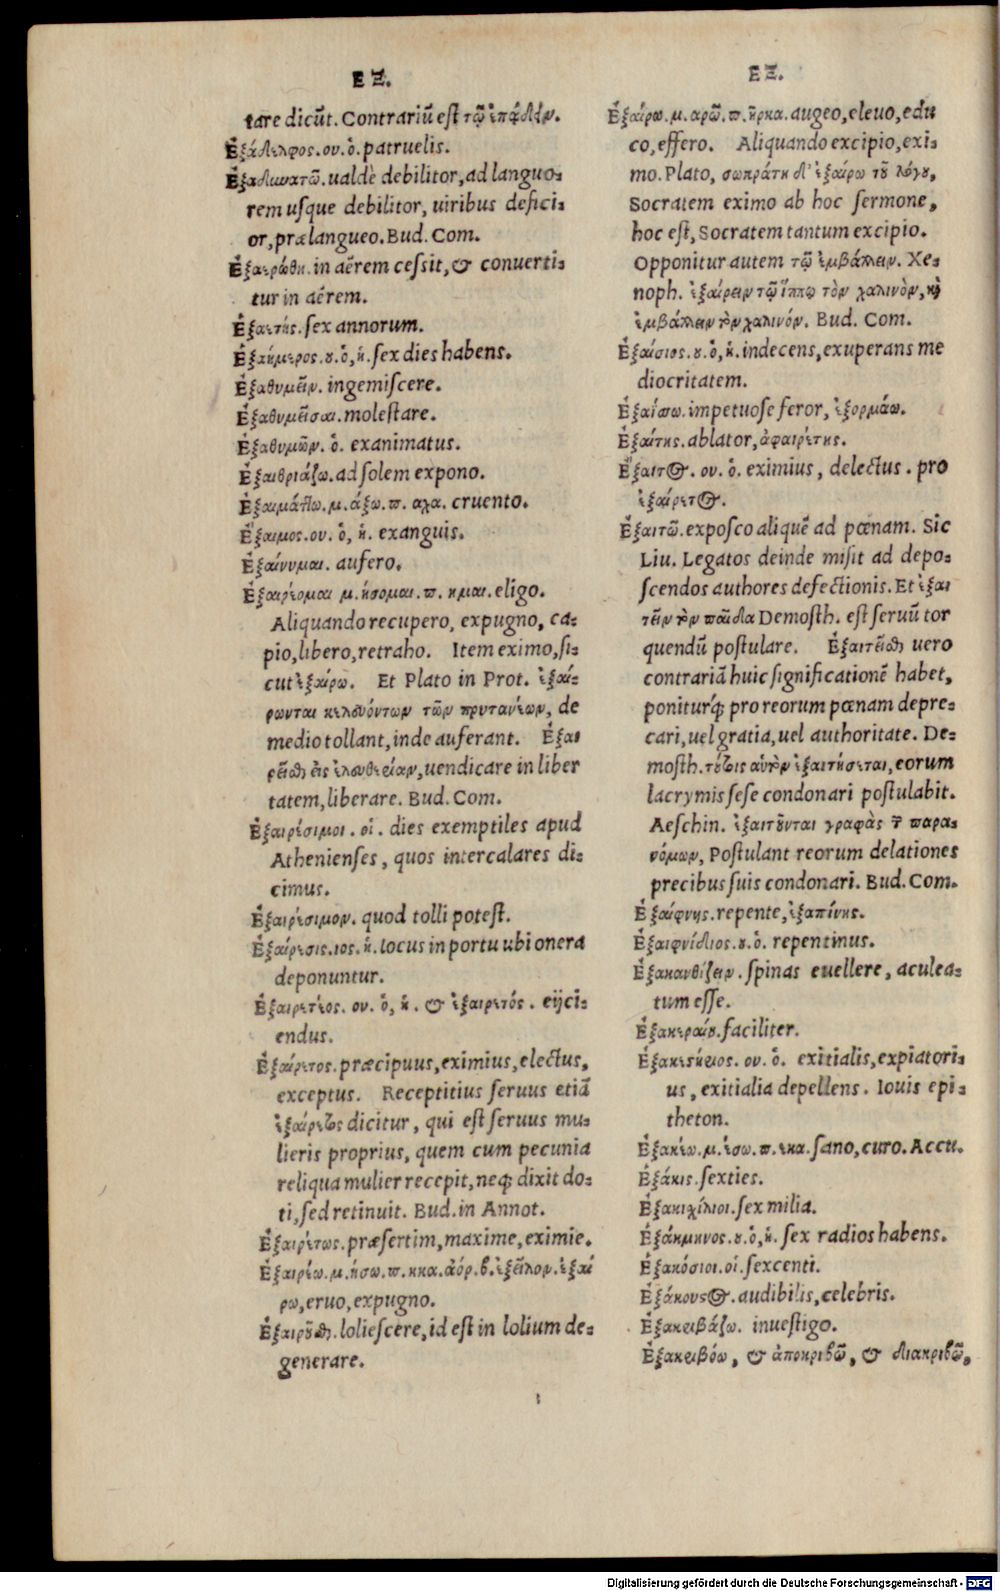 ΕΞ.
tare dicūt. Contrariū est τῷ ἐπᾴδειν.
Ἐξάδελφος. ου. ὁ. patruelis.
Ἐξαδυνατῶ. ualdè debilitor, ad languo-
rem usque debilitor, uiribus defici-
or, prælangueo. Bud. Com.
Ἐξαερώθη. in aërem cessit, & conuerti-
tur in aërem.
Ἐξαετής. sex annorum.
Ἐξαήμερος. ου. ὁ, ἡ. sex dies habens.
Ἐξαθυμεῖν. ingemiscere.
Ἐξαθυμεῖσαι. molestare.
Ἐξαθυμῶν. ὁ. exanimatus.
Ἐξαιθριάζω. ad solem expono.
Ἐξαιμάττω. μ. άξω. π. αχα. cruento.
Ἔξαιμος. ου. ὁ, ἡ. exanguis.
Ἐξαίνυμαι. aufero.
Ἐξαιρέομαι μ. ήσομαι. π. ημαι. eligo.
Aliquando recupero, expugno, ca-
pio, libero, retraho. Item eximo, si-
cut ἐξαίρω. Et Plato in Prot. ἐξαί-
ρωνται κελευόντων τῶν πρυτανέων, de
medio tollant, inde auferant. Ἐξαι
ρεῖσθαι εἰς ἐλευθερίαν, uendicare in liber
tatem, liberare. Bud. Com.
Ἐξαιρέσιμοι. οἱ. dies exemptiles apud
Athenienses, quos intercalares di-
cimus.
Ἐξαιρέσιμον. quod tolli potest.
Ἐξαίρεσις. ιος. ἡ. locus in portu ubi onera
deponuntur.
Ἐξαιρετέος. ου. ὁ, ἡ. & ἐξαιρετός. eijci-
endus.
Ἐξαίρετος. præcipuus, eximius, electus,
exceptus. Receptitius seruus etiā
ἐξαίρετος dicitur, qui est seruus mu-
lieris proprius, quem cum pecunia
reliqua mulier recepit, neq; dixit do-
ti, sed retinuit. Bud. in Annot.
Ἐξαιρέτως. præsertim, maxime, eximie.
Ἐξαιρέω. μ. ήσω. π. ηκα. ἀόρ. β. ἐξεῖλον. ἐξαί
ρω, eruo, expugno.
Ἐξαιροῦσθαι. loliescere, id est in lolium de-
generare.
ΕΞ.
Ἐξαίρω. μ. αρῶ. π. ῆρκα. augeo, eleuo, edu
co, effero. Aliquando excipio, exi-
mo. Plato, σωκράτη δ' ἐξαίρω τοῦ λόγου,
Socratem eximo ab hoc sermone,
hoc est, Socratem tantum excipio.
Opponitur autem τῷ ἐμβάλλειν. Xe-
noph. ἐξαίρειν τῷ ἵππῳ τὸν χαλινὸν, καὶ
ἐμβάλλειν τὸν χαλινόν. Bud. Com.
Ἐξαίσιος. ου. ὁ, ἡ. indecens, exuperans me
diocritatem.
Ἐξαΐσσω. impetuose feror, ἐξορμάω.
Ἐξαίτης. ablator, ἀφαιρέτης.
Ἔξαιτος. ου. ὁ. eximius, delectus. pro
ἐξαίρετος.
Ἐξαιτῶ. exposco aliquē ad pœnam. Sic
Liu. Legatos deinde misit ad depo-
scendos authores defectionis. Et ἐξαι
τεῖν τὸν παῖδα Demosth. est seruū tor
quendū postulare. Ἐξαιτεῖσθαι uero
contrariā huic significationē habet,
poniturq́; pro reorum pœnam depre-
cari, uel gratia, uel authoritate. De-
mosth. τούτοις αὐτὸν ἐξαιτήσεται, eorum
lacrymis sese condonari postulabit.
Aeschin. ἐξαιτοῦνται γραφὰς τῶν παρα-
νόμων, Postulant reorum delationes
precibus suis condonari. Bud. Com.
Ἐξαίφνης. repente, ἐξαπίνης.
Ἐξαιφνίδιος. ου. ὁ. repentinus.
Ἐξακανθίζειν. spinas euellere, aculea-
tum esse.
Ἐξακεραίου. faciliter.
Ἐξακεστήριος. ου. ὁ. exitialis, expiatori-
us, exitialia depellens. Iouis epi-
theton.
Ἐξακέω. μ. έσω. π. εκα. sano, curo. Accu.
Ἑξάκις. sexties.
Ἑξακιχίλιοι. sex milia.
Ἐξάκμηνος. ου. ὁ, ἡ. sex radios habens.
Ἑξακόσιοι. οἱ. sexcenti.
Ἐξάκουστος. audibilis, celebris.
Ἐξακριβάζω. inuestigo.
Ἐξακριβόω, & ἀποκριβῶ, & διακριβῶ,
Digitalisierung gefördert durch die Deutsche Forschungsgemeinschaft - DFG